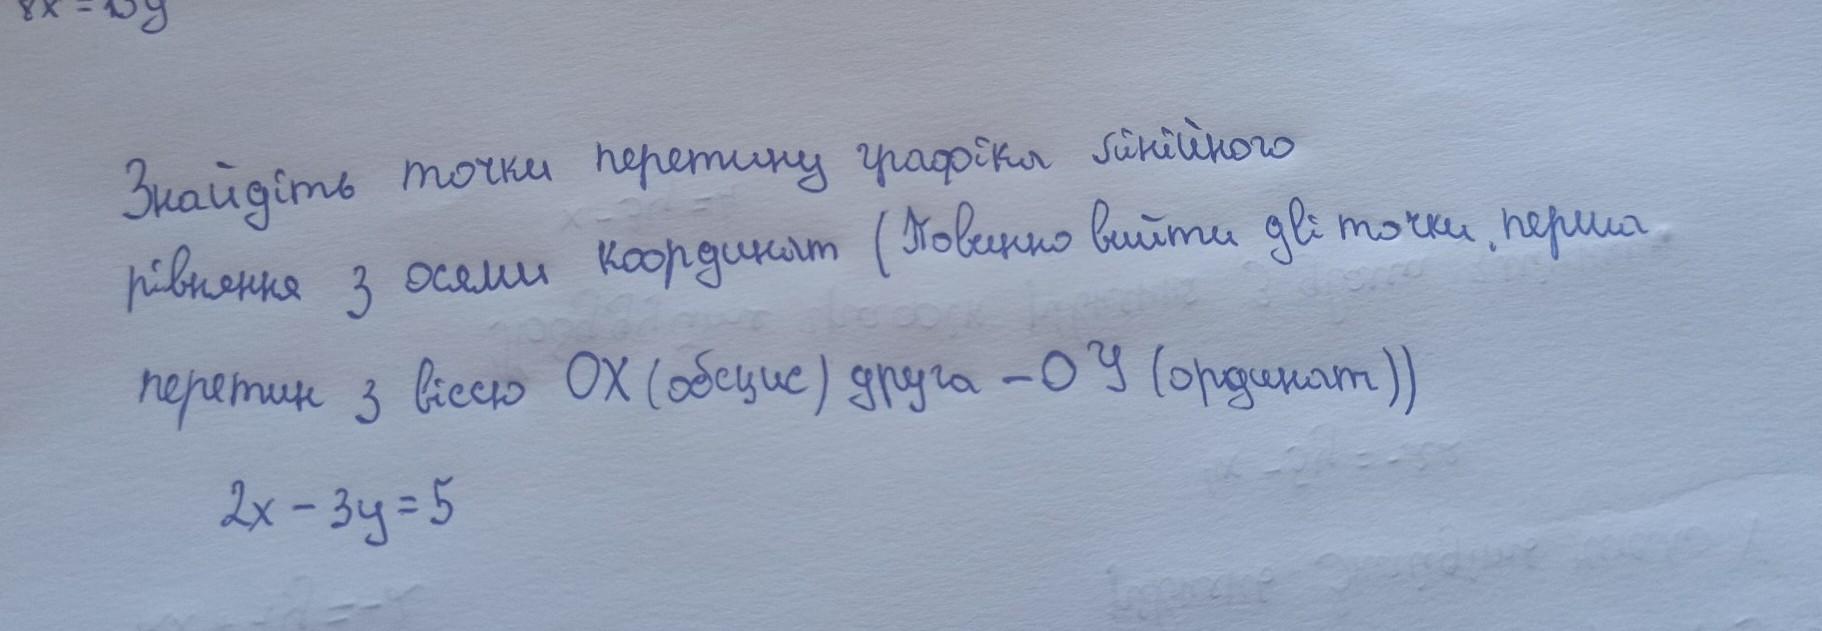 8x = 15y
Знайдіть точки перетину графіка лінійного
рівняння з осями координат (Повинно вийти дві точки, перша
перетин з віссю OX (абсцис) друга - OY (ординат))
2x - 3y = 5